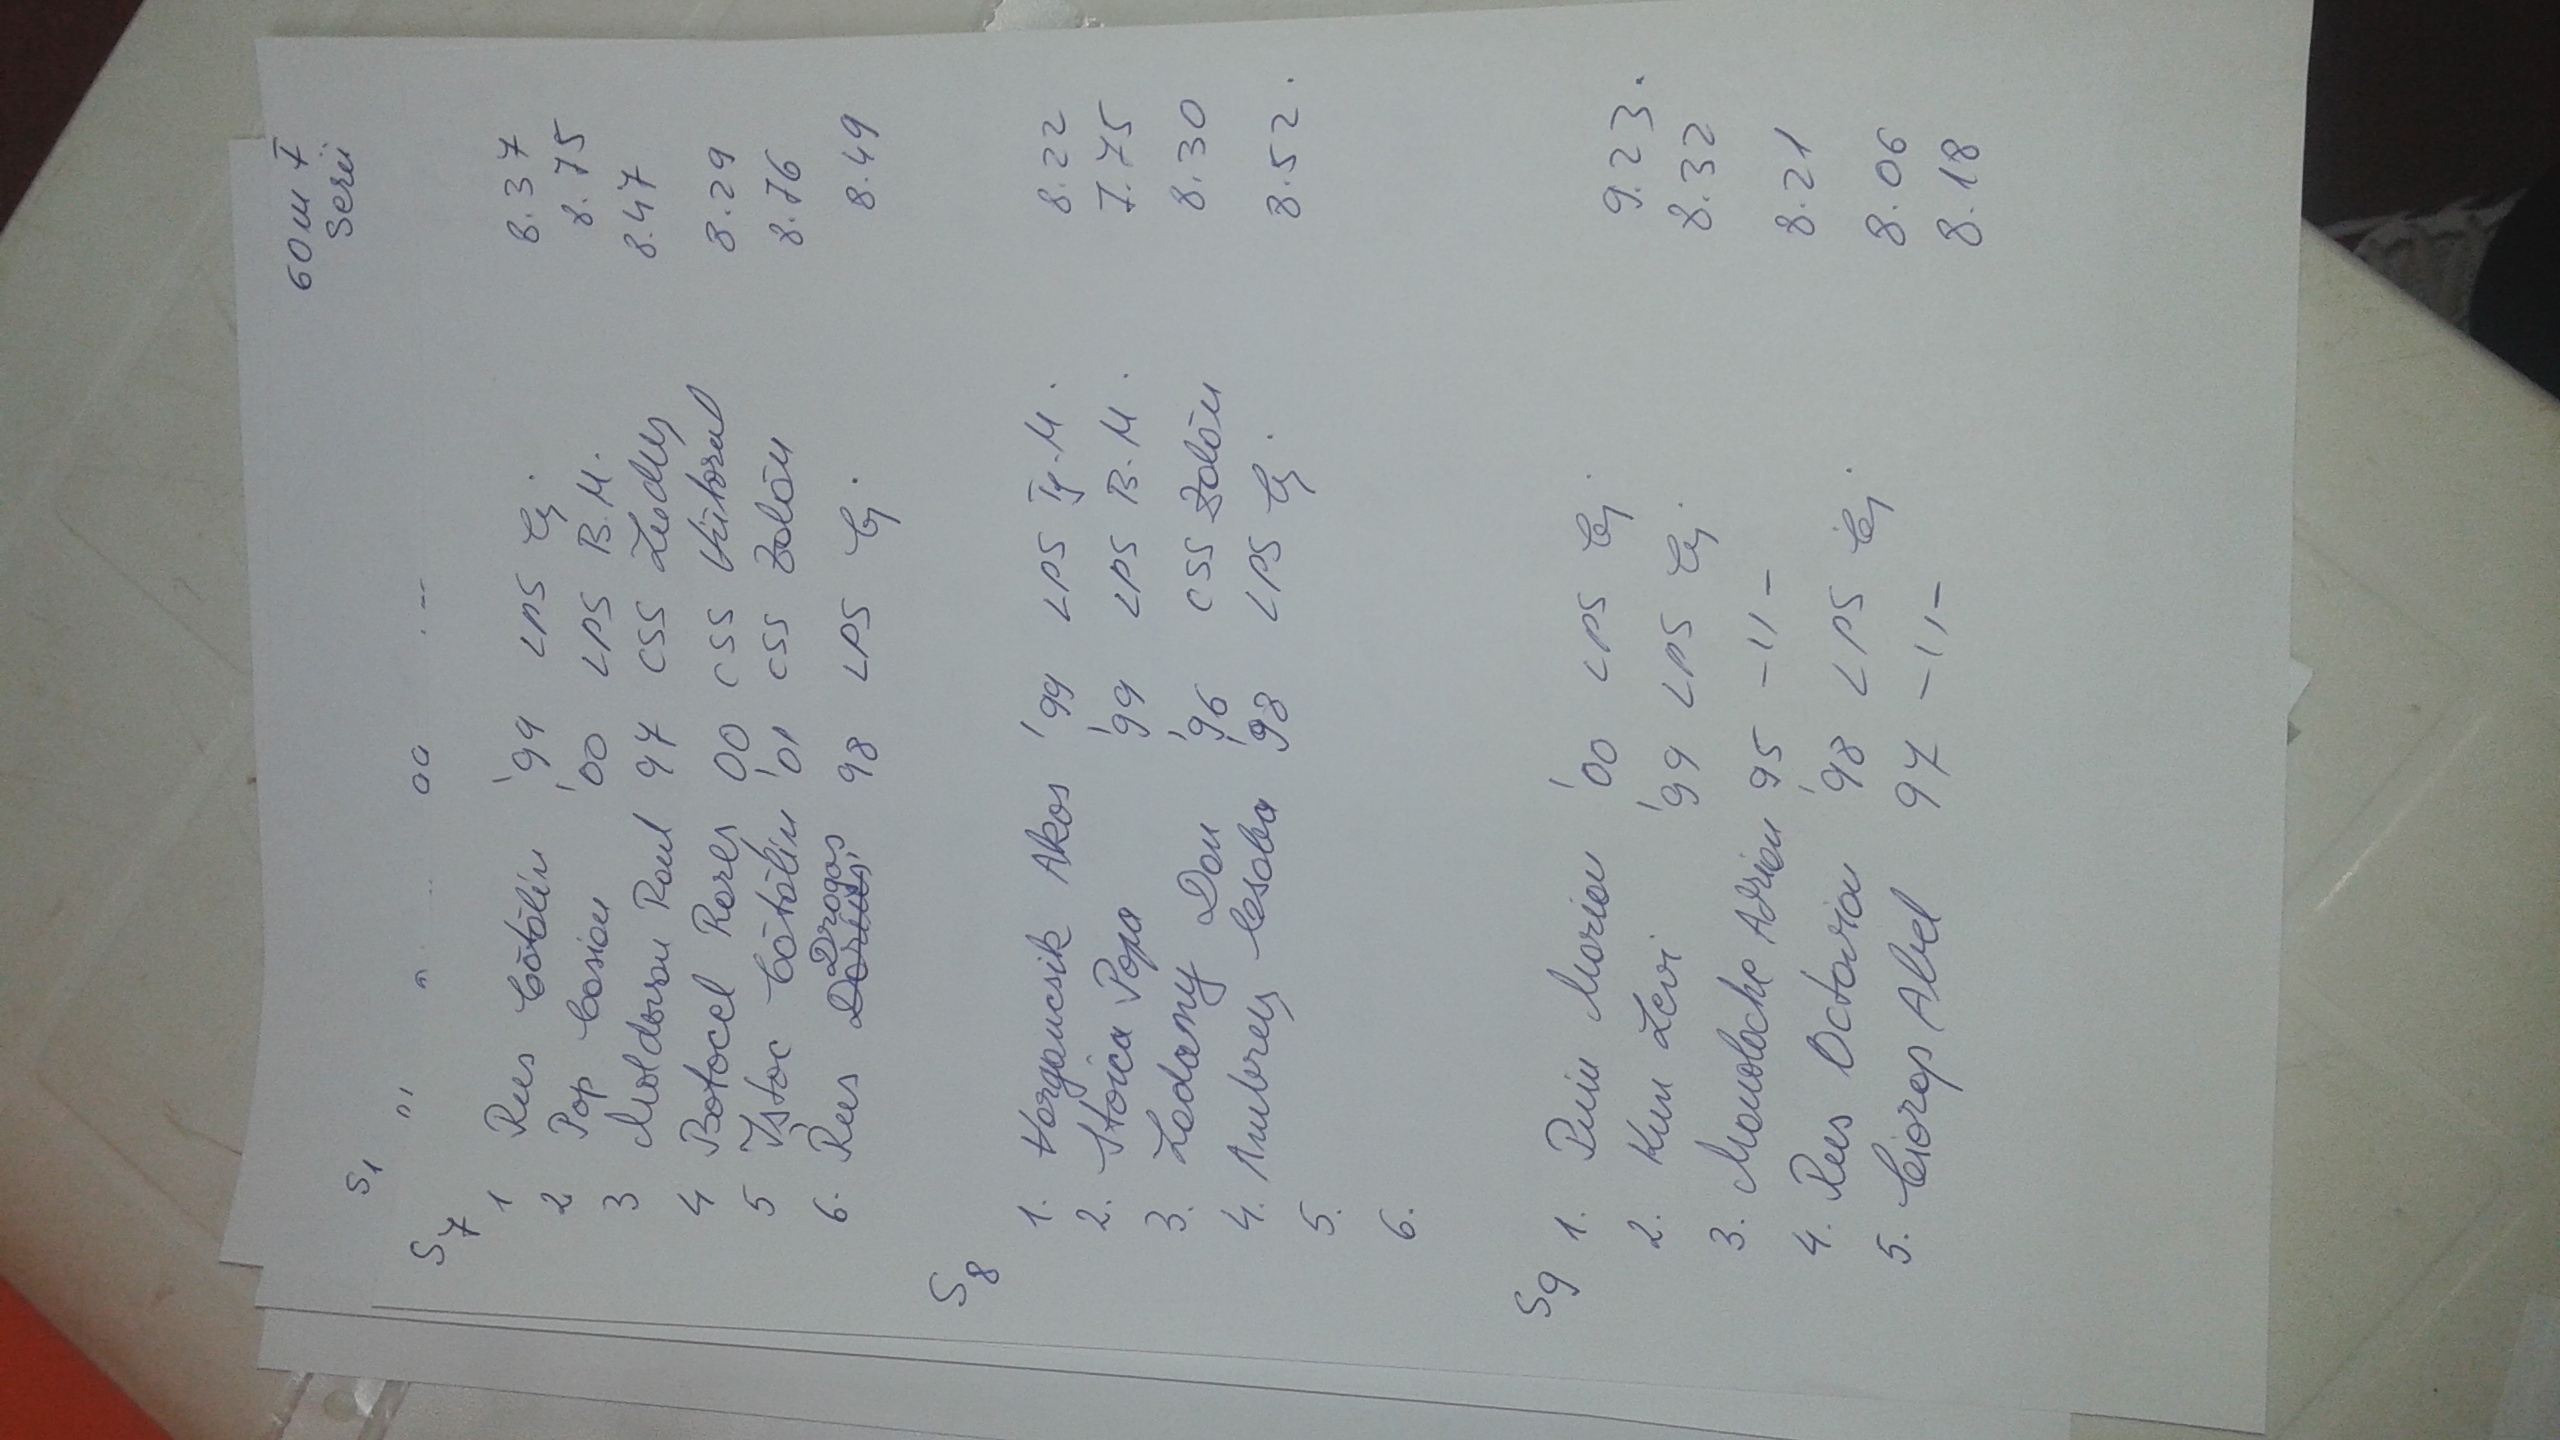 60m F
Serii
S1 " " " 00 . --
S7
1 Rus Cătălin '99 LPS Cj. 8.37
2 Pop Casian '00 LPS B.M. 8.75
3 Moldovan Paul 97 CSS Luduș 8.47
4 Botocel Rareș 00 CSS Viitorul 8.29
5 Iștoc Cătălin '01 CSS Zalău 8.76
6. Rus Darius, Dragoș 98 LPS Cj. 8.49
S8
1. Horgancsik Akos '99 LPS Tg.M. 8.22
2. Stoica Popa '99 LPS B.M. 7.75
3. Ladany Dan '96 CSS Zalău 8.30
4. Ambruș Csaba '98 LPS Cj. 8.52.
5.
6.
S9
1. Puiu Marian '00 LPS Cj. 9.23.
2. Kun Levi '99 LPS Cj. 8.32
3. Manolache Adrian 95 -11- 8.21
4. Rus Octavian '98 LPS Cj. 8.06
5. Ciorap Abel 97 -11- 8.18